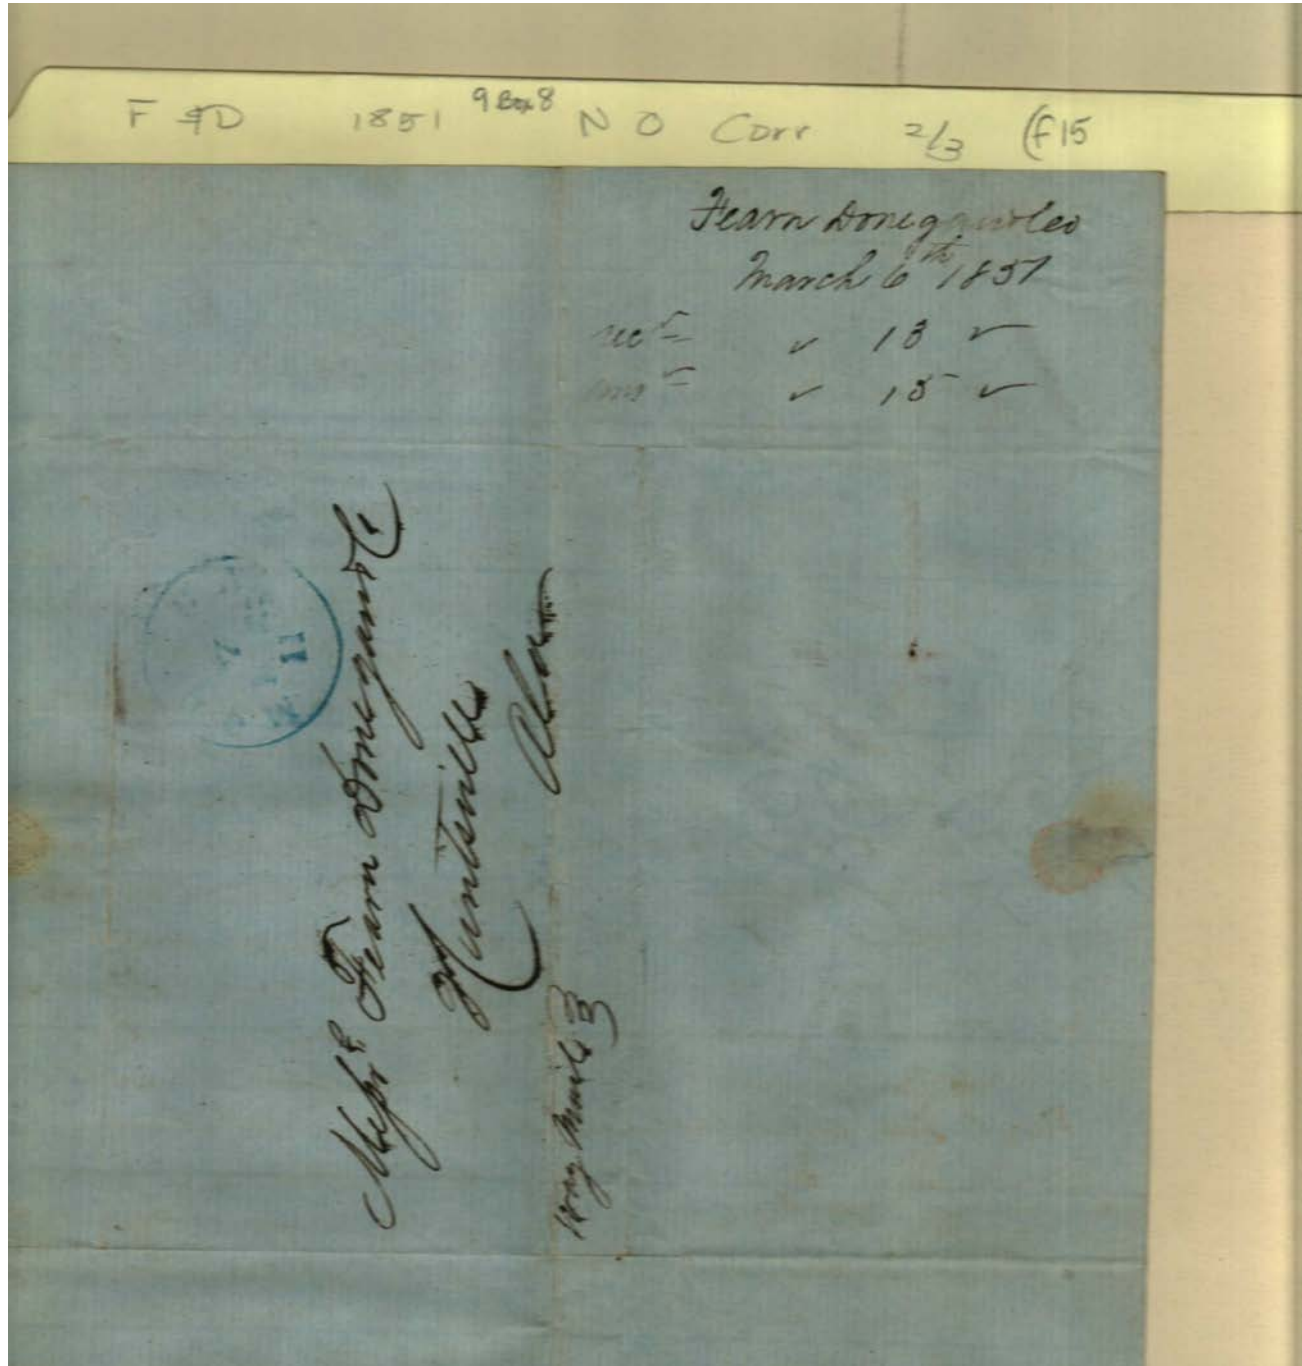 F & D 1851 9 Box 8 N O Corr 2/3 (F15
Fearn Donegan & Co
March 6th 1851
recd ✓ 13 ✓
ansd ✓ 15 ✓
Messrs. Fearn Donegan & Co.
Huntsville
Ala
Way Mail 3
7
11